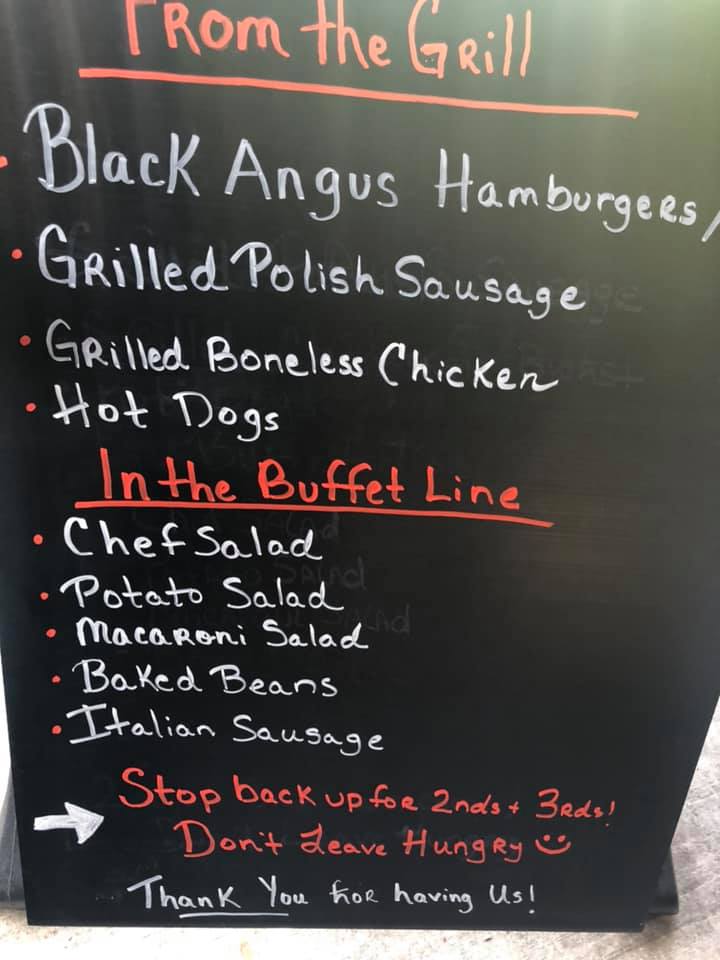 From the Grill
• Black Angus Hamburgers/
• Grilled Polish Sausage
• Grilled Boneless Chicken
• Hot Dogs
In the Buffet Line
• Chef Salad
• Potato Salad
• Macaroni Salad
• Baked Beans
• Italian Sausage
→ Stop back up for 2nds + 3rds!
Don't Leave Hungry :)
Thank You for having Us!